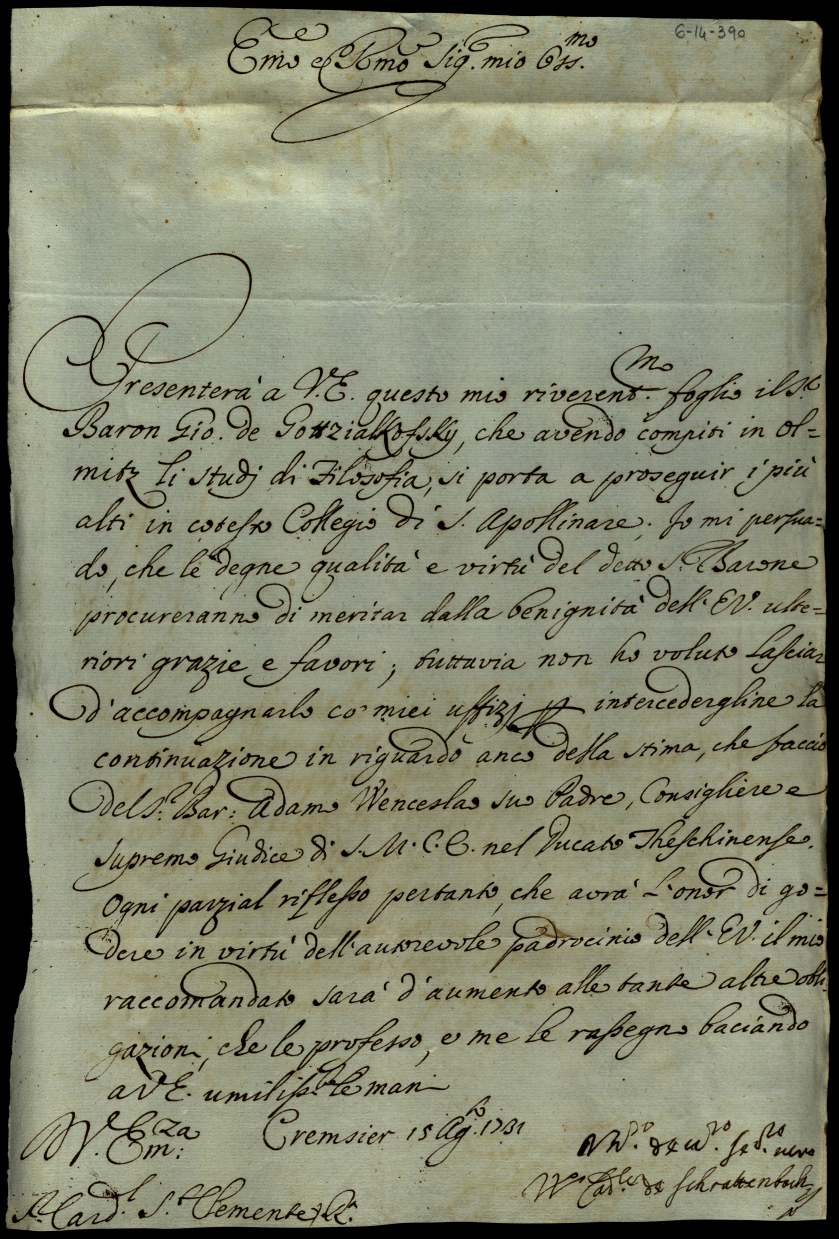 6-14-390
Emo e Rmo Sig. mio Oss.mo
Presenterà a V.E. questo mio riverent.mo foglio il S.r
Baron Gio. de Gottzialkofsky, che avendo compiti in Ol=
mitz li studj di Filosofia, si porta a proseguir j più
alti in cotesto Collegio di S. Apollinare. Io mi persua=
do, che le degne qualità e virtù del detto S.r Barone
procureranno di meritar dalla benignità dell'EV. ulte=
riori grazie e favori; tuttavia non ho voluto lasciar
d'accompagnarlo co' miei uffizj intercedergline la
continuazione in riguardo anco della stima, che faccio
del S.r Bar: Adamo Wenceslao suo Padre, Consigliere e
supremo Giudice di S.M.C.C. nel Ducato Theschinense.
Ogni parzial riflesso pertanto, che avrà l'onor di go=
dere in virtù dell'autorevole padrocinio dell'EV. il mio
raccomandato sarà d'aumento alle tante altre obli=
gazioni, che le professo, e me le rassegno baciando
a VE. umiliss.te le mani
Cremsier 15 Ag.o 1731
D V. Em:za
S.r Card.l S. Clemente
W. Card.le de Schrattenbach